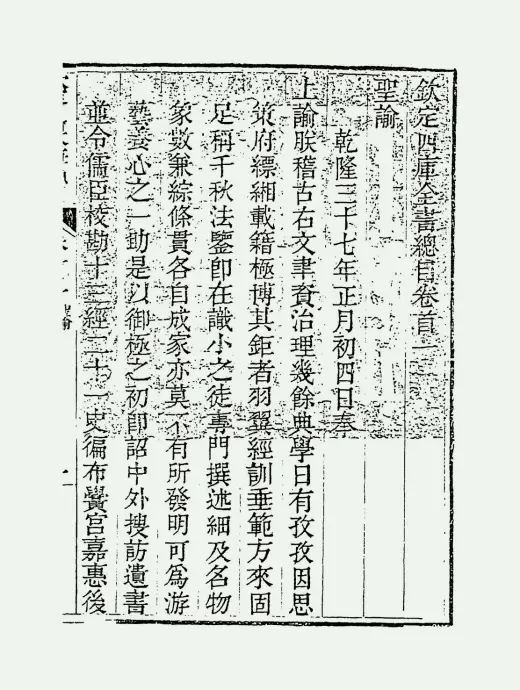 欽定四庫全書總目卷首一
聖諭
乾隆三十七年正月初四日奉
上諭朕稽古右文聿資治理幾餘典學日有孜孜因思
策府縹緗載籍極博其鉅者羽翼經訓垂範方來固
足稱千秋法鑒卽在識小之徒專門撰述細及名物
象數兼綜條貫各自成家亦莫不有所發明可爲游
藝養心之一助是以御極之初卽詔中外搜訪遺書
並令儒臣校勘十三經二十一史徧布黌宮嘉惠後
聖諭
一